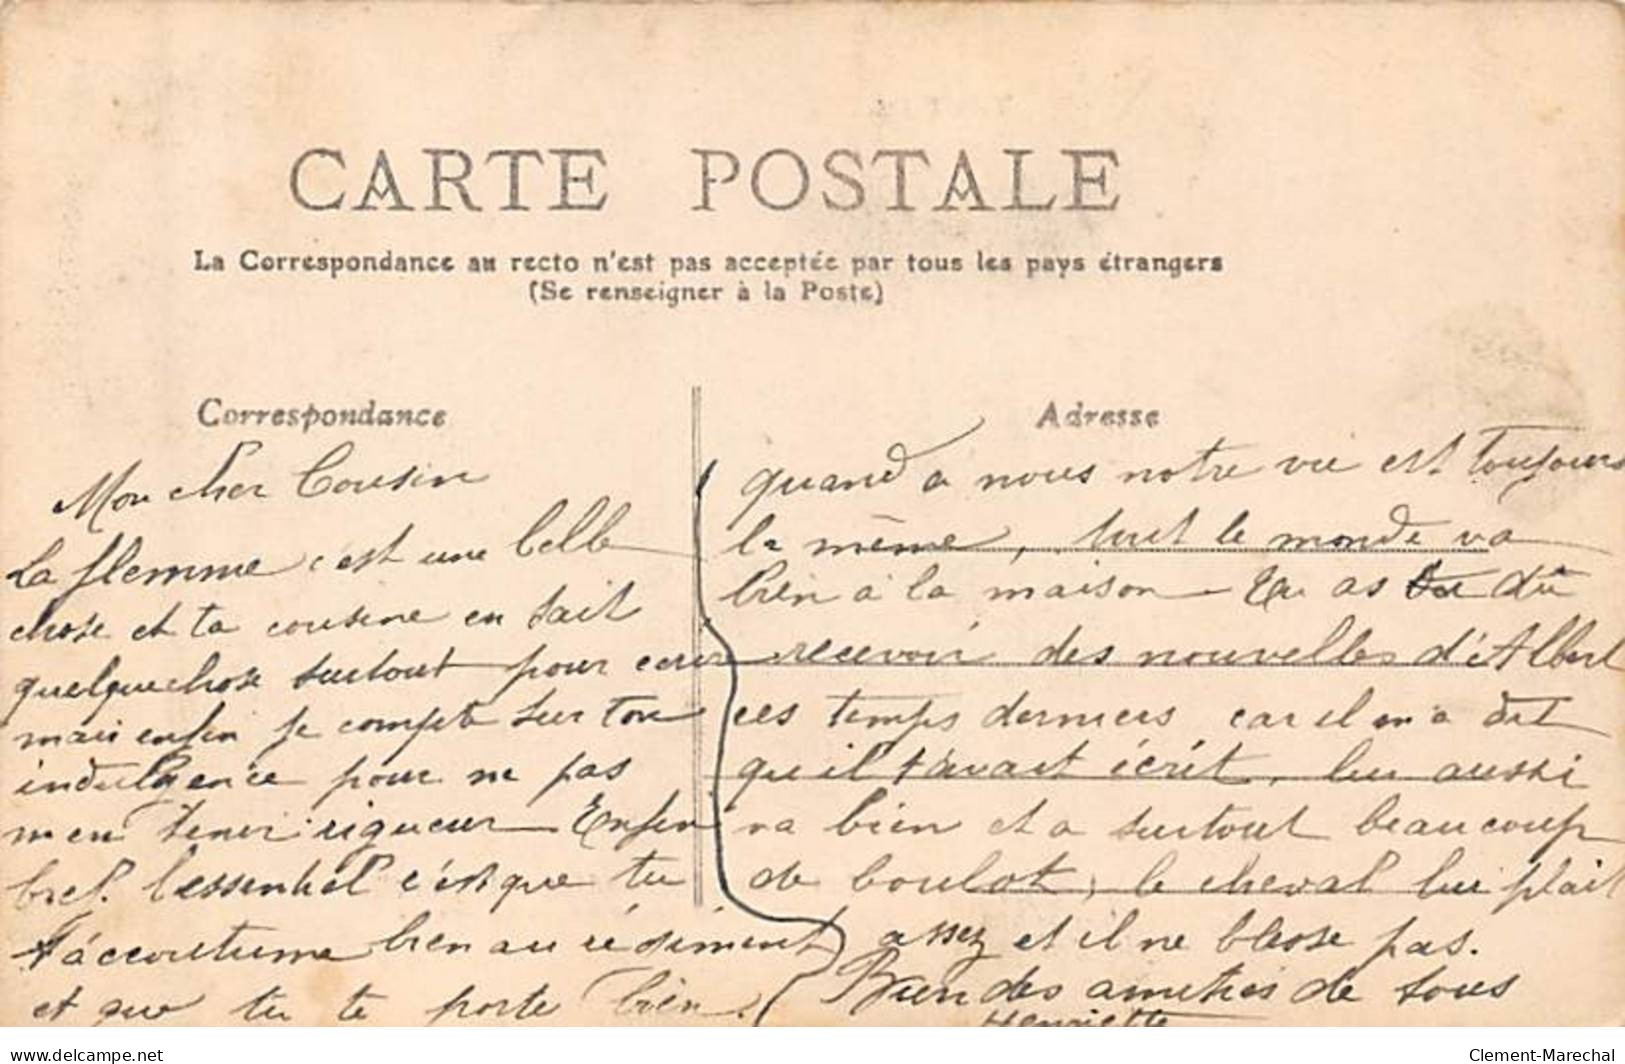 CARTE POSTALE
La Correspondance au recto n'est pas acceptée par tous les pays étrangers
(Se renseigner à la Poste)
Correspondance
Mon cher Cousin
La flemme c'est une belle
chose et ta cousine en sait
quelquechose surtout pour ecrire
mais enfin je compte sur ton
indulgence pour ne pas
m'en tenir rigueur. Enfin
bref. l'essentiel c'est que tu
t'accoutume bien au régiment
et que tu te porte bien.
Adresse
quand a nous notre vie est toujours
la même, tout le monde va
bien à la maison. Tu as dû
recevoir des nouvelles d'Albert
ces temps derniers car il m'a dit
qu'il t'avait écrit, lui aussi
va bien et a surtout beaucoup
de boulot, le cheval lui plait
assez et il ne blesse pas.
Bien des amitiés de tous
Henriette
www.delcampe.net
Clement-Marechal